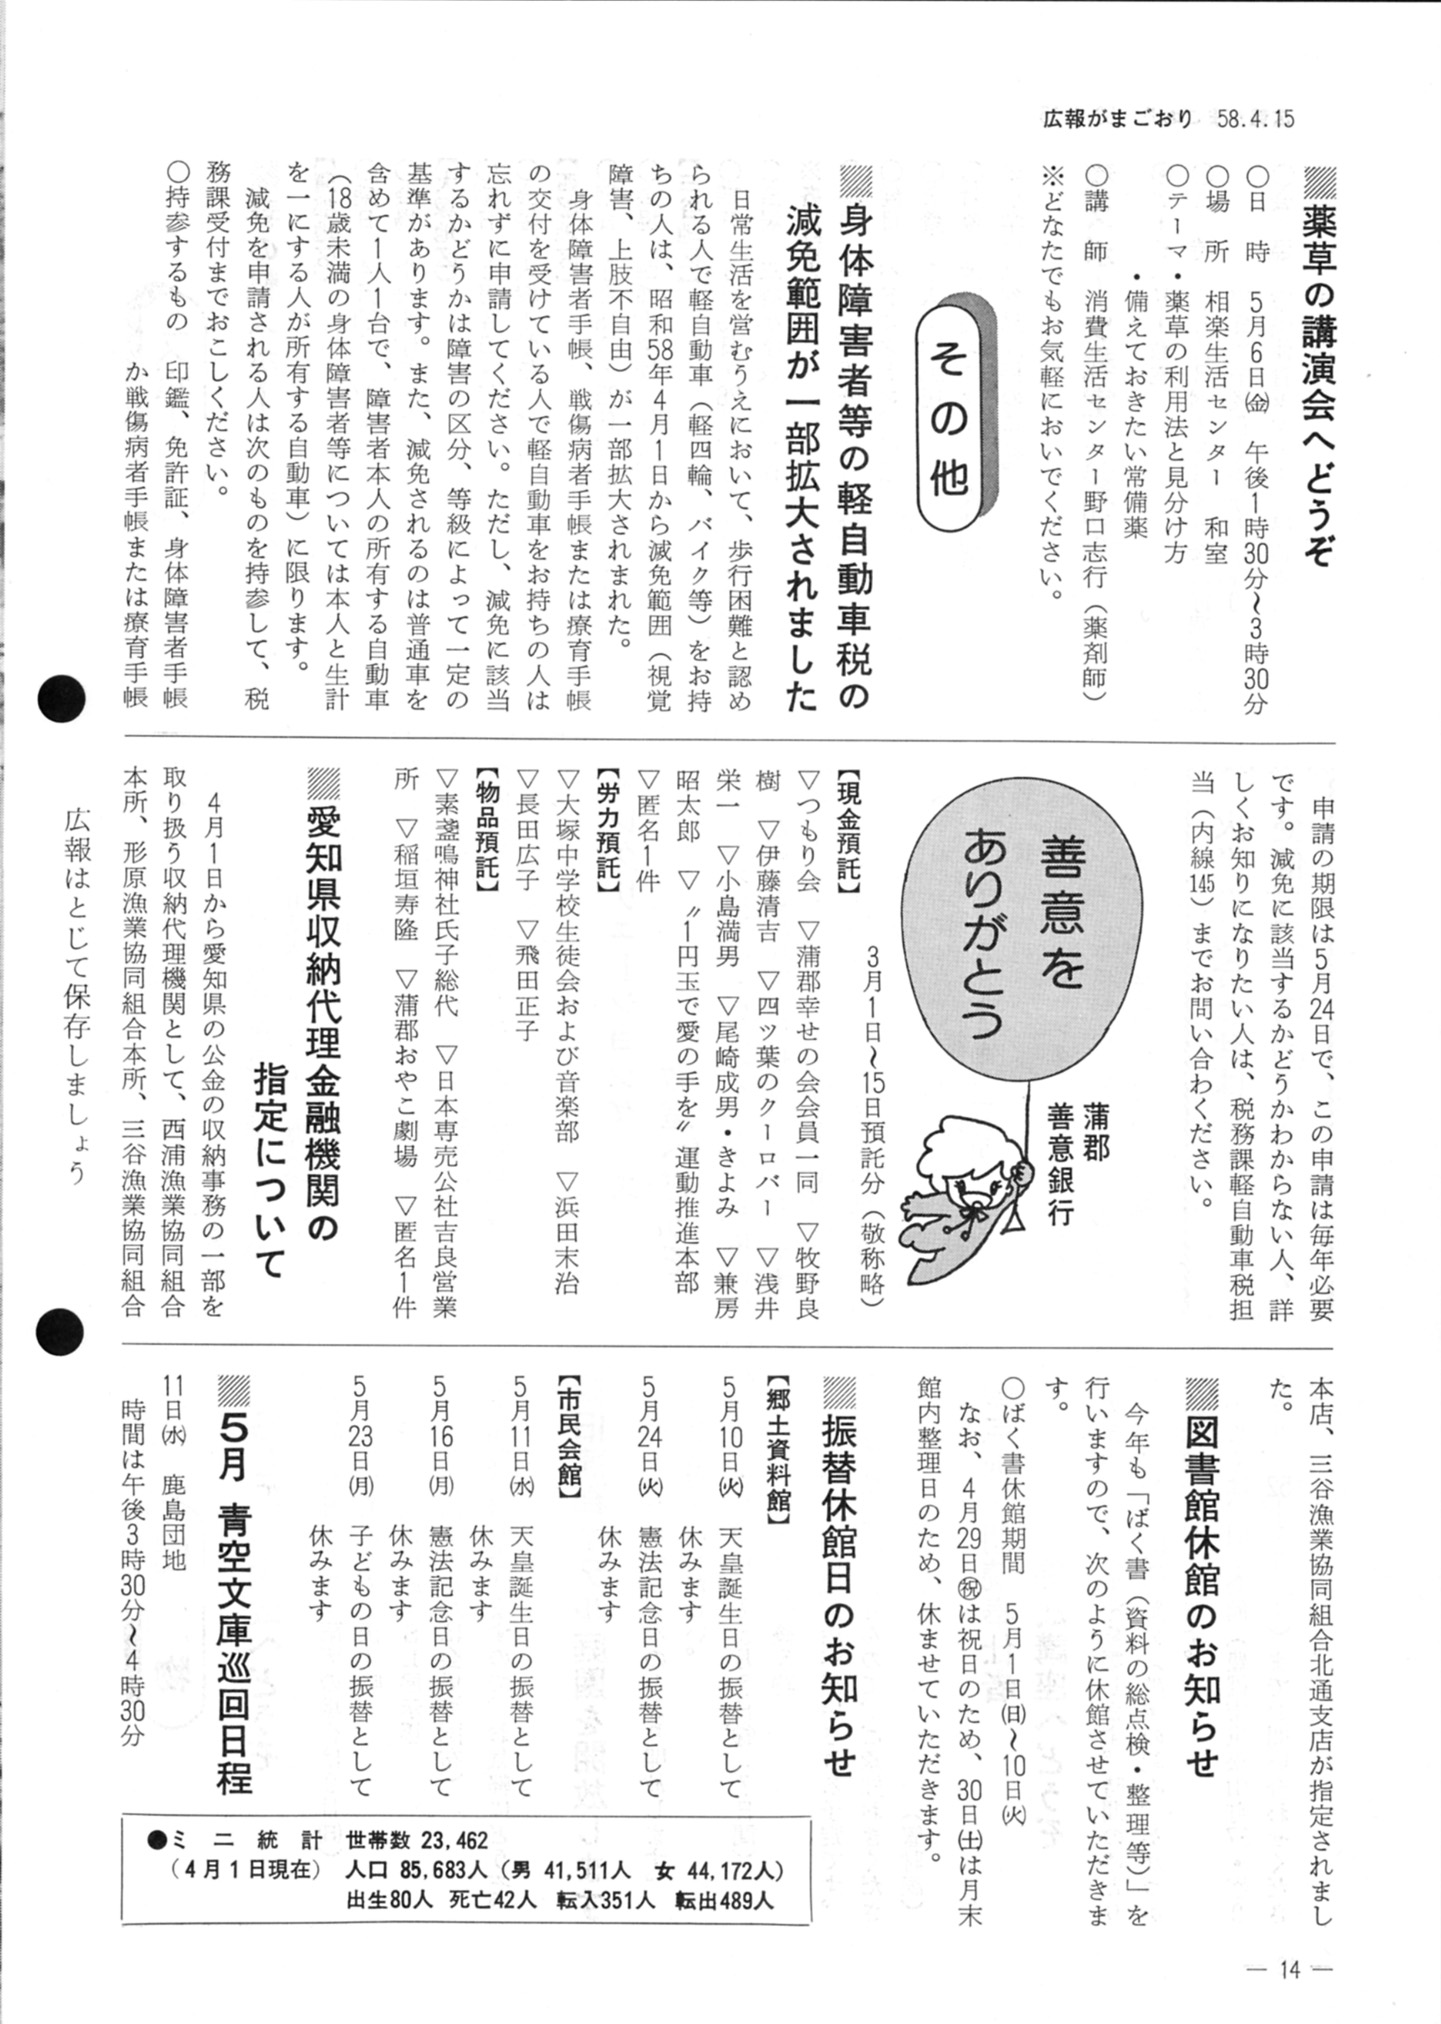 広報がまごおり 58.4.15
薬草の講演会へどうぞ
○日　時　5月6日㈮　午後1時30分〜3時30分
○場　所　相楽生活センター　和室
○テーマ・薬草の利用法と見分け方
・備えておきたい常備薬
○講　師　消費生活センター野口志行（薬剤師）
※どなたでもお気軽においでください。
その他
身体障害者等の軽自動車税の
減免範囲が一部拡大されました
日常生活を営むうえにおいて、歩行困難と認め
られる人で軽自動車（軽四輪、バイク等）をお持
ちの人は、昭和58年4月1日から減免範囲（視覚
障害、上肢不自由）が一部拡大されました。
身体障害者手帳、戦傷病者手帳または療育手帳
の交付を受けている人で軽自動車をお持ちの人は
忘れずに申請してください。ただし、減免に該当
するかどうかは障害の区分、等級によって一定の
基準があります。また、減免されるのは普通車を
含めて1人1台で、障害者本人の所有する自動車
（18歳未満の身体障害者等については本人と生計
を一にする人が所有する自動車）に限ります。
減免を申請される人は次のものを持参して、税
務課受付までおこしください。
○持参するもの　印鑑、免許証、身体障害者手帳
か戦傷病者手帳または療育手帳
申請の期限は5月24日で、この申請は毎年必要
です。減免に該当するかどうかわからない人、詳
しくお知りになりたい人は、税務課軽自動車税担
当（内線145）までお問い合わください。
善意を
ありがとう
蒲郡
善意銀行
3月1日〜15日預託分（敬称略）
【現金預託】
▽つもり会　▽蒲郡幸せの会会員一同　▽牧野良
樹　▽伊藤清吉　▽四ツ葉のクーロバー　▽浅井
栄一　▽小島満男　▽尾崎成男・きよみ　▽兼房
昭太郎　▽〝1円玉で愛の手を〟運動推進本部
▽匿名1件
【労力預託】
▽大塚中学校生徒会および音楽部　▽浜田末治
▽長田広子　▽飛田正子
【物品預託】
▽素盞鳴神社氏子総代　▽日本専売公社吉良営業
所　▽稲垣寿隆　▽蒲郡おやこ劇場　▽匿名1件
愛知県収納代理金融機関の
指定について
4月1日から愛知県の公金の収納事務の一部を
取り扱う収納代理機関として、西浦漁業協同組合
本所、形原漁業協同組合本所、三谷漁業協同組合
本店、三谷漁業協同組合北通支店が指定されまし
た。
図書館休館のお知らせ
今年も「ばく書（資料の総点検・整理等）」を
行いますので、次のように休館させていただきま
す。
○ばく書休館期間　5月1日㈰〜10日㈫
なお、4月29日㊗は祝日のため、30日㈯は月末
館内整理日のため、休ませていただきます。
振替休館日のお知らせ
【郷土資料館】
5月10日㈫　天皇誕生日の振替として
休みます
5月24日㈫　憲法記念日の振替として
休みます
【市民会館】
5月11日㈬　天皇誕生日の振替として
休みます
5月16日㈪　憲法記念日の振替として
休みます
5月23日㈪　子どもの日の振替として
休みます
5月 青空文庫巡回日程
11日㈬　鹿島団地
時間は午後3時30分〜4時30分
●ミニ統計　世帯数 23,462
（4月1日現在）　人口 85,683人（男 41,511人　女 44,172人）
出生80人　死亡42人　転入351人　転出489人
広報はとじて保存しましょう
― 14 ―